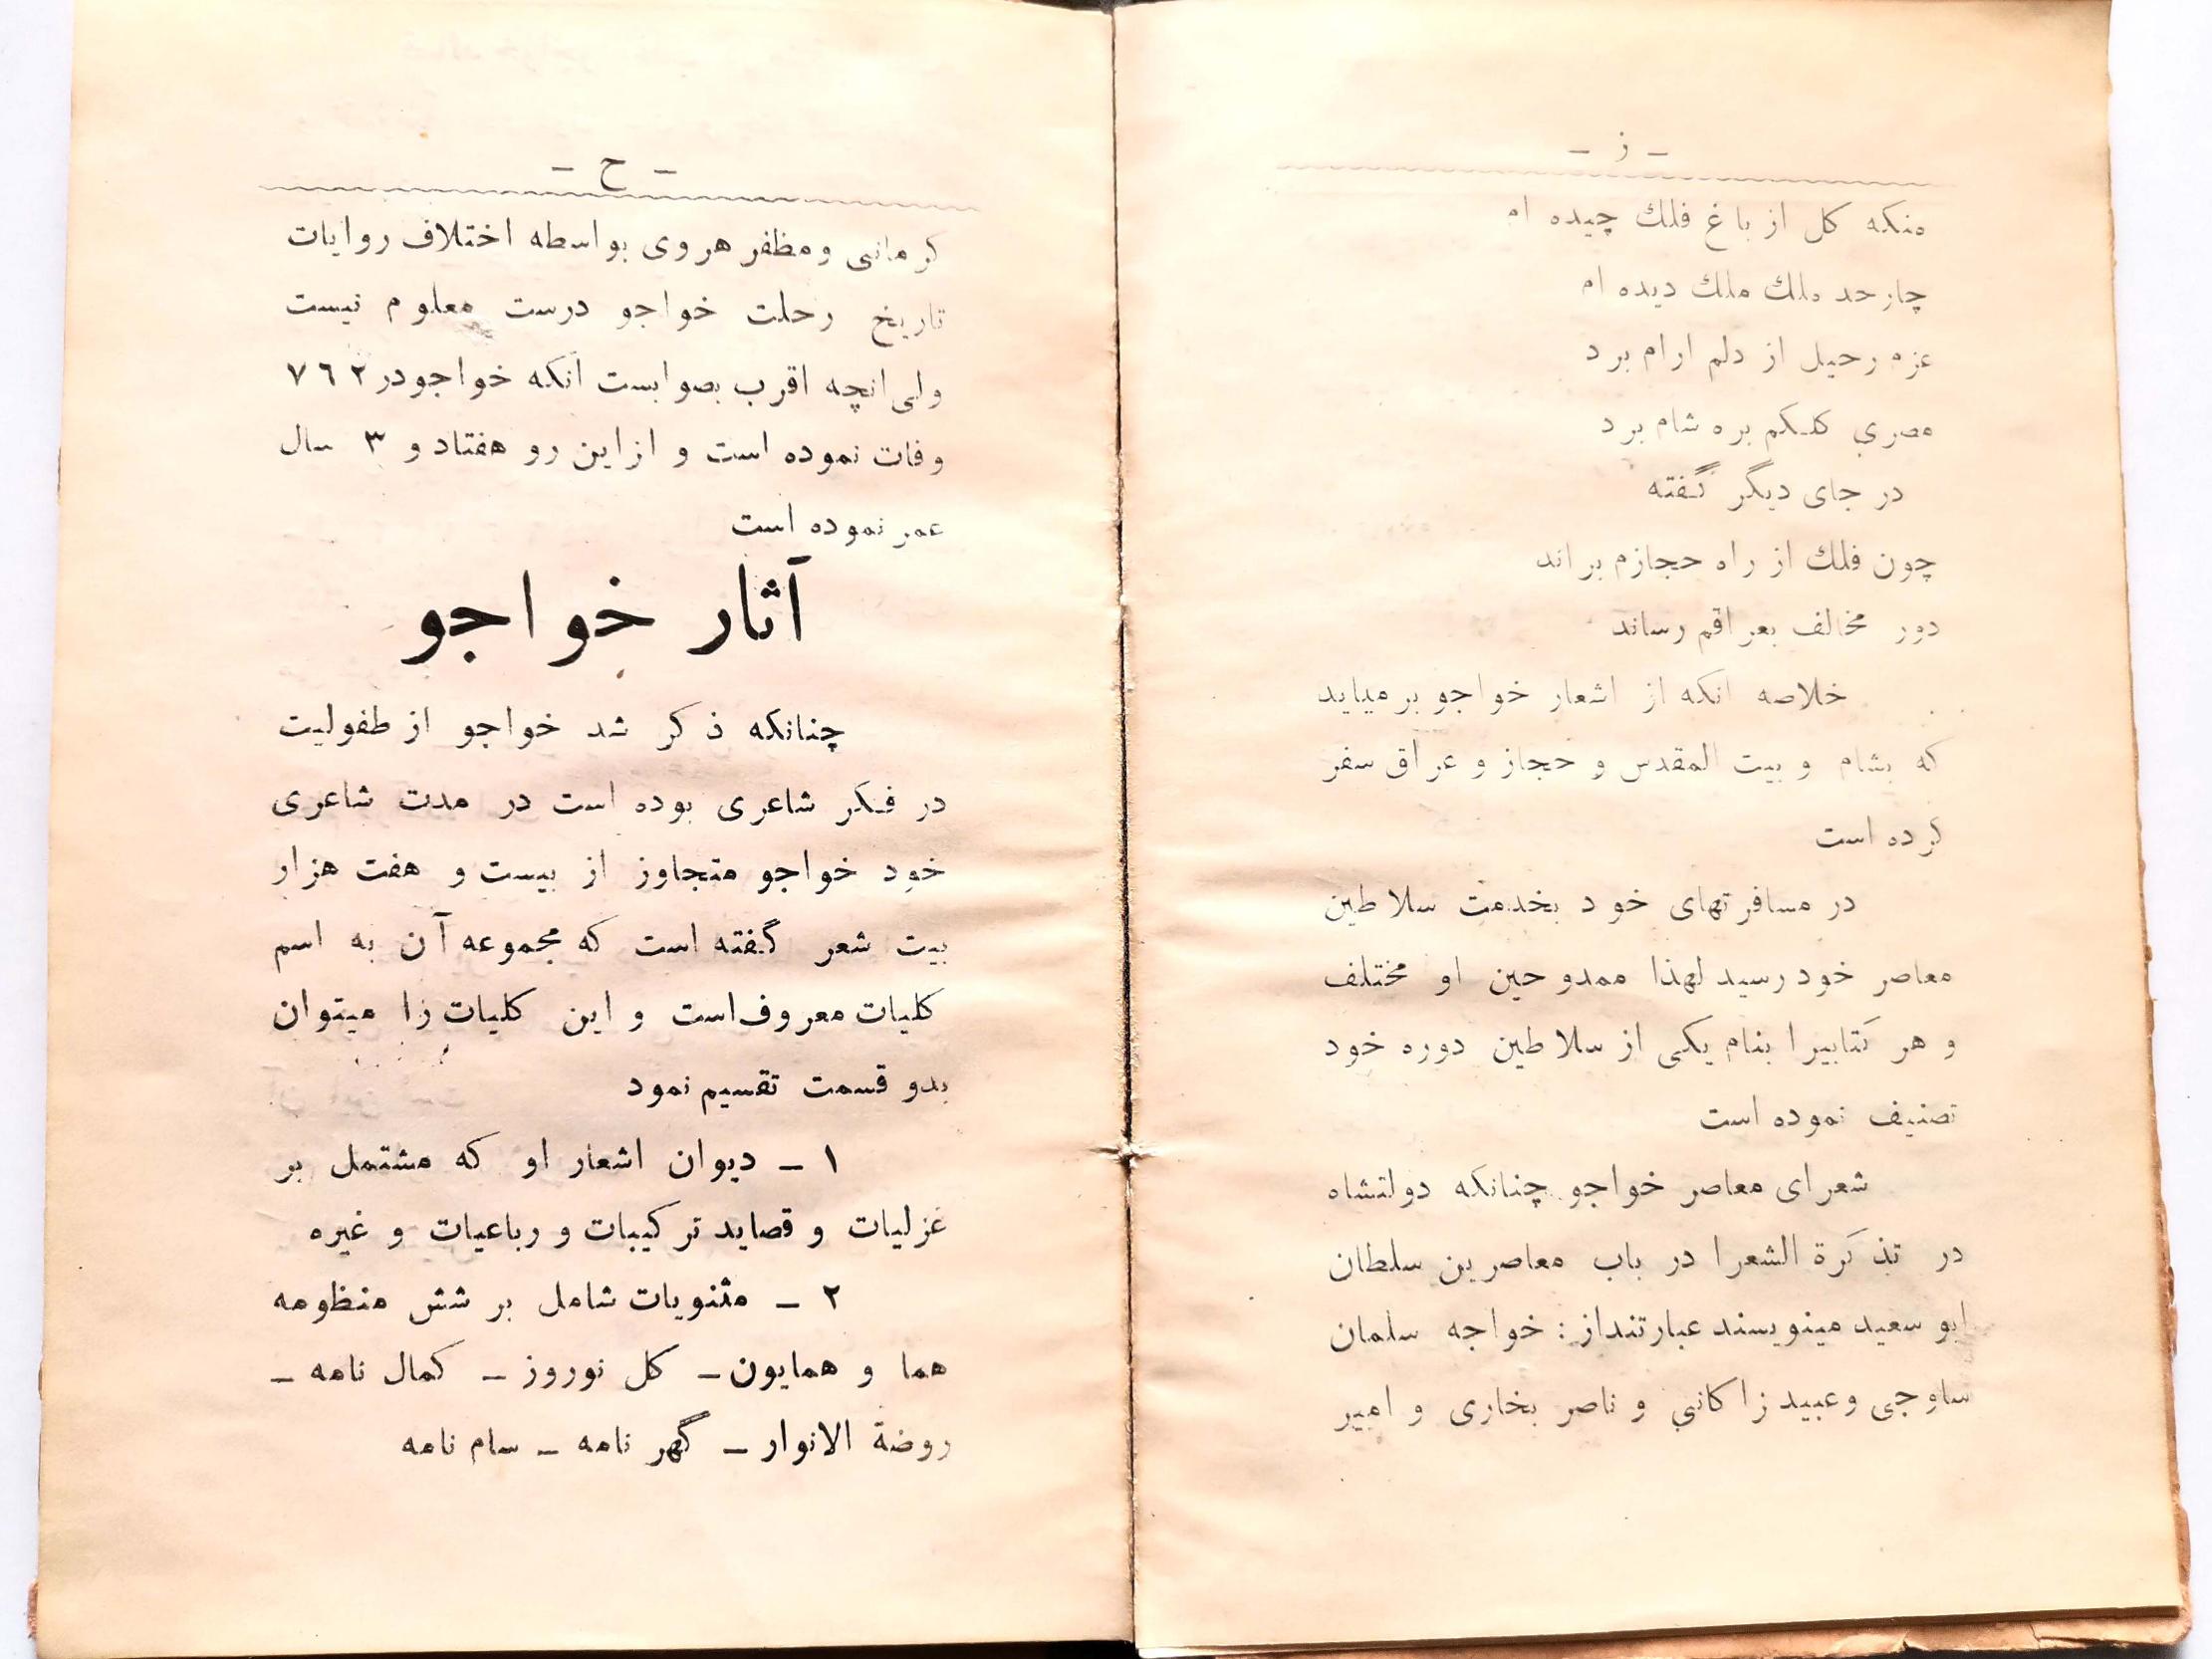 - ز -
منکه کل از باغ فلك چیده ام
چارحد ملك ملك دیده ام
عزم رحیل از دلم ارام برد
مصری کلکم بره شام برد
در جای دیگر گفته
چون فلك از راه حجازم براند
دور مخالف بعراقم رساند
خلاصه انکه از اشعار خواجو برمیاید
که بشام و بیت المقدس و حجاز و عراق سفر
کرده است
در مسافرتهای خود بخدمت سلاطین
معاصر خود رسید لهذا ممدوحین او مختلف
و هر کتابیرا بنام یکی از سلاطین دوره خود
تصنیف نموده است
شعرای معاصر خواجو چنانکه دولتشاه
در تذکرة الشعرا در باب معاصرین سلطان
ابو سعید مینویسند عبارتنداز : خواجه سلمان
ساوجی وعبید زاکانی و ناصر بخاری و امیر
- ح -
کرمانی ومظفر هروی بواسطه اختلاف روایات
تاریخ رحلت خواجو درست معلوم نیست
ولی انچه اقرب بصوابست آنکه خواجودر ٧٦٢
وفات نموده است و ازاین رو هفتاد و ٣ سال
عمر نموده است
آثار خواجو
چنانکه ذکر شد خواجو از طفولیت
در فکر شاعری بوده است در مدت شاعری
خود خواجو متجاوز از بیست و هفت هزار
بیت شعر گفته است که مجموعه آن به اسم
کلیات معروف‌است و این کلیات را میتوان
بدو قسمت تقسیم نمود
١ - دیوان اشعار او که مشتمل بر
غزلیات و قصاید ترکیبات و رباعیات و غیره
٢ - مثنویات شامل بر شش منظومه
هما و همایون - کل نوروز - کمال نامه -
روضة الانوار - گهر نامه - سام نامه